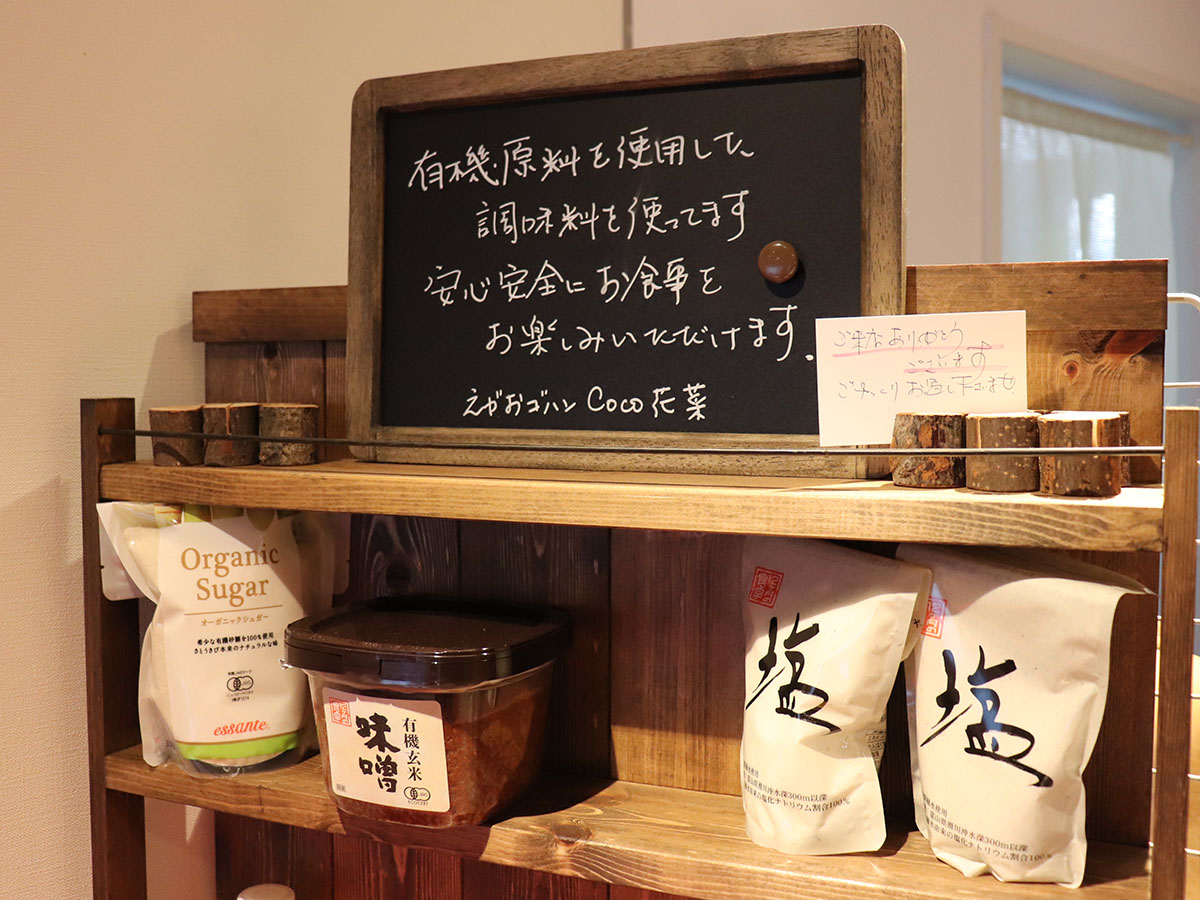 有機原料を使用した、
調味料を使ってます
安心安全にお食事を
お楽しみいただけます.
えがおゴハン Coco花菜
ご来店ありがとう
ございます
ごゆっくりお過し下さいませ
Organic
Sugar
オーガニックシュガー
希少な有機砂糖を100%使用
さとうきび本来のナチュラルな味
essante.
有機玄米
味噌
ECOCERT
塩
300m以深
の塩化ナトリウム割合100%
塩
富山県滑川沖水深300m以深
由来の塩化ナトリウム割合100%